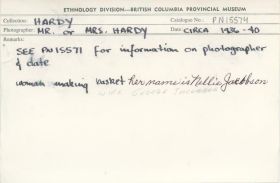 ETHNOLOGY DIVISION—BRITISH COLUMBIA PROVINCIAL MUSEUM
Collection: HARDY Catalogue No.: PN15574
Photographer: MR. or MRS. HARDY Date CIRCA 1936-40
Remarks:
SEE PN15571 for information on photographer
& date
woman making basket her name is Nellie Jacobson
WIFE GEORGE JACOBSON